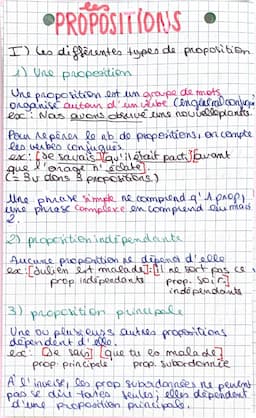 les
PROPOSITIONS
I) Les différentes types de proposition
1) Une proposition
Une proposition est un groupe de mots
organisé autour d'un verbe
ex: Nous avons observé une nouvelle plante.
Pour repérer le nb de propositions, on compte
les verbes conjugués.
ex: [Je savais] [qu'il était parti] [avant
que l'orage n'éclate].
(= 3v dans 3 propositions.)
Une phrase simple ne comprend q'1 prop,
une phrase complexe en comprend au mois
2.
2) proposition indépendante
Aucune proposition ne dépend d'elle
ex: [Julien est malade]: [il ne sort pas ce
soir]
prop indépendante prop.
indépendante
3) proposition principale
Une ou plusieurs autres propositions
dépendent d'elle.
ex: [Je sais] [que tu es malade]
prop. principale prop. subordonnée
À l'inverse, les prop subordonnées ne peuvent
pas se dire toutes seules; elles dépendent
d'une proposition principale.